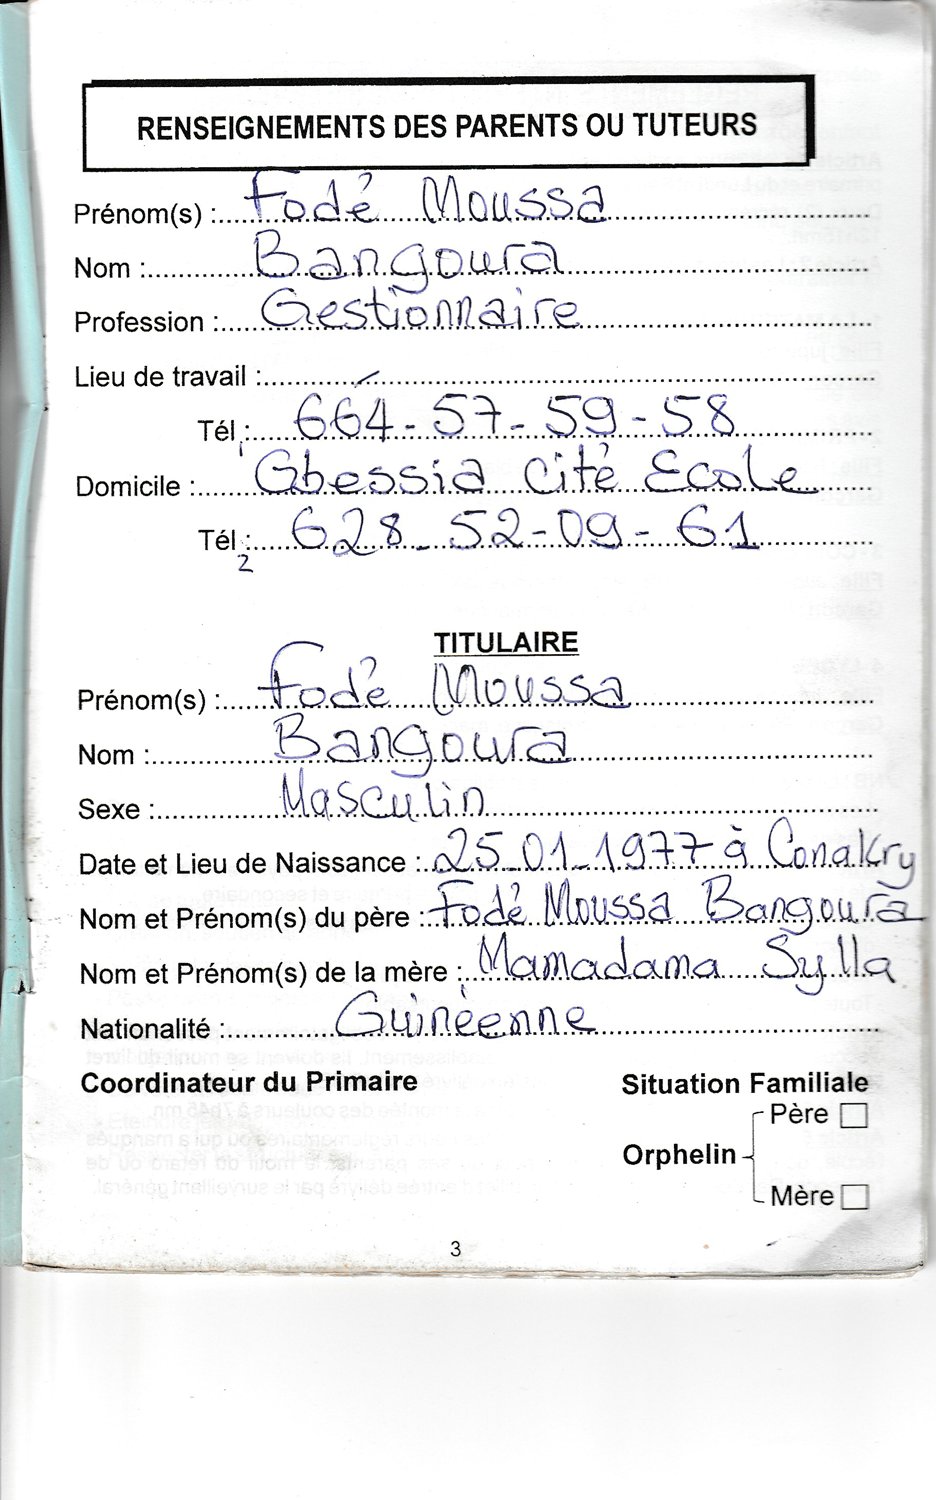 RENSEIGNEMENTS DES PARENTS OU TUTEURS
Prénom(s) : Fodé Moussa
Nom : Bangoura
Profession : Gestionnaire
Lieu de travail : /
Tél 1 : 664-57-59-58
Domicile : Gbessia Cité Ecole
Tél 2 : 628-52-09-61
TITULAIRE
Prénom(s) : Fodé Moussa
Nom : Bangoura
Sexe : Masculin
Date et Lieu de Naissance : 25-01-1977 à Conakry
Nom et Prénom(s) du père : Fodé Moussa Bangoura
Nom et Prénom(s) de la mère : Mamadama Sylla
Nationalité : Guinéenne
Coordinateur du Primaire Situation Familiale
Père
Orphelin
Mère
3